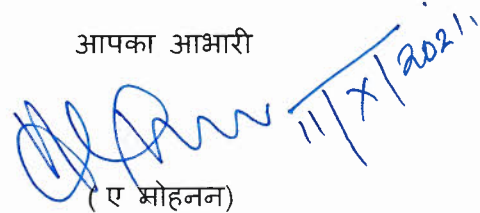 आपका आभारी
11/X/2021.
(ए मोहनन)